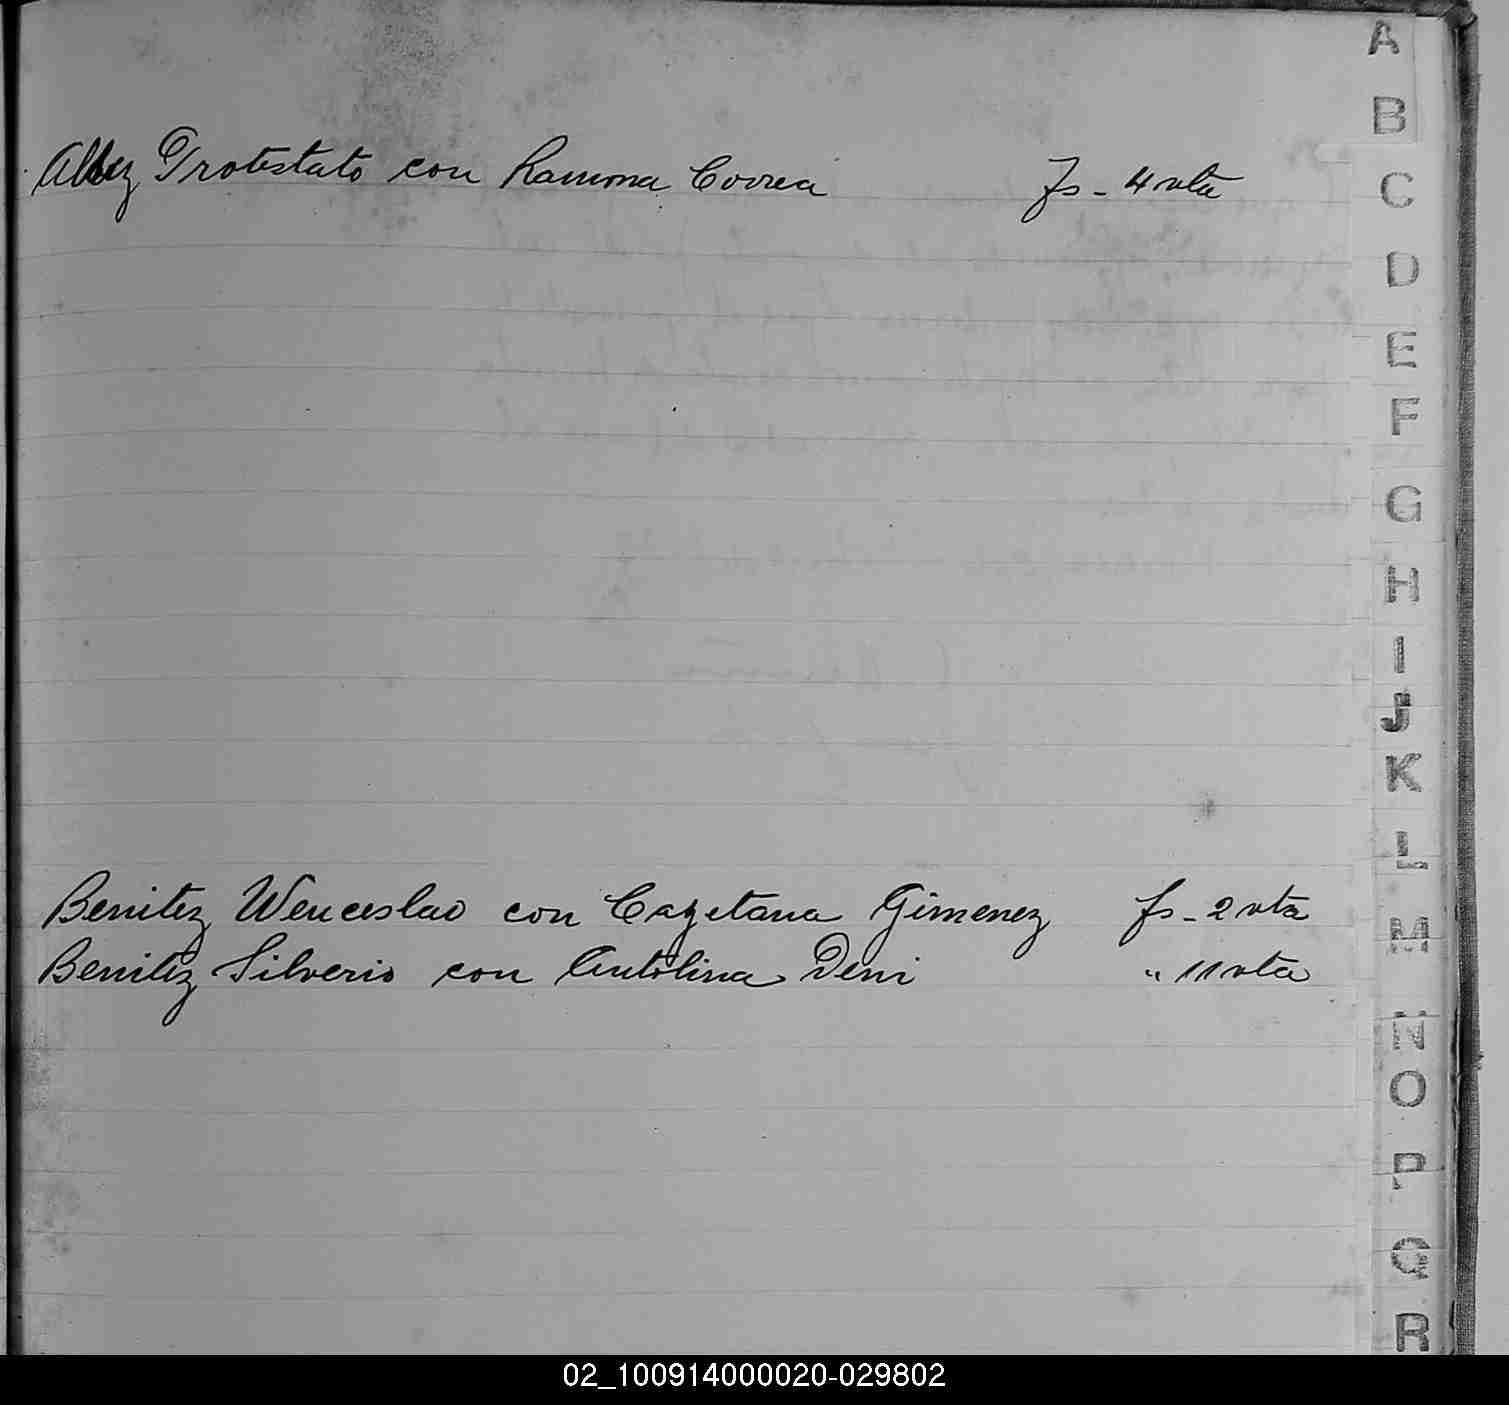 Protestato con Ramona Correa fs - 4 vta
Benitez Wenceslao con Cayetana Gimenez fs - 2 vta
Benitez Silverio con Antolina Deni " 11 vta
A
B
C
D
E
F
G
H
I
J
K
L
M
N
O
P
Q
R
02_100914000020-029802